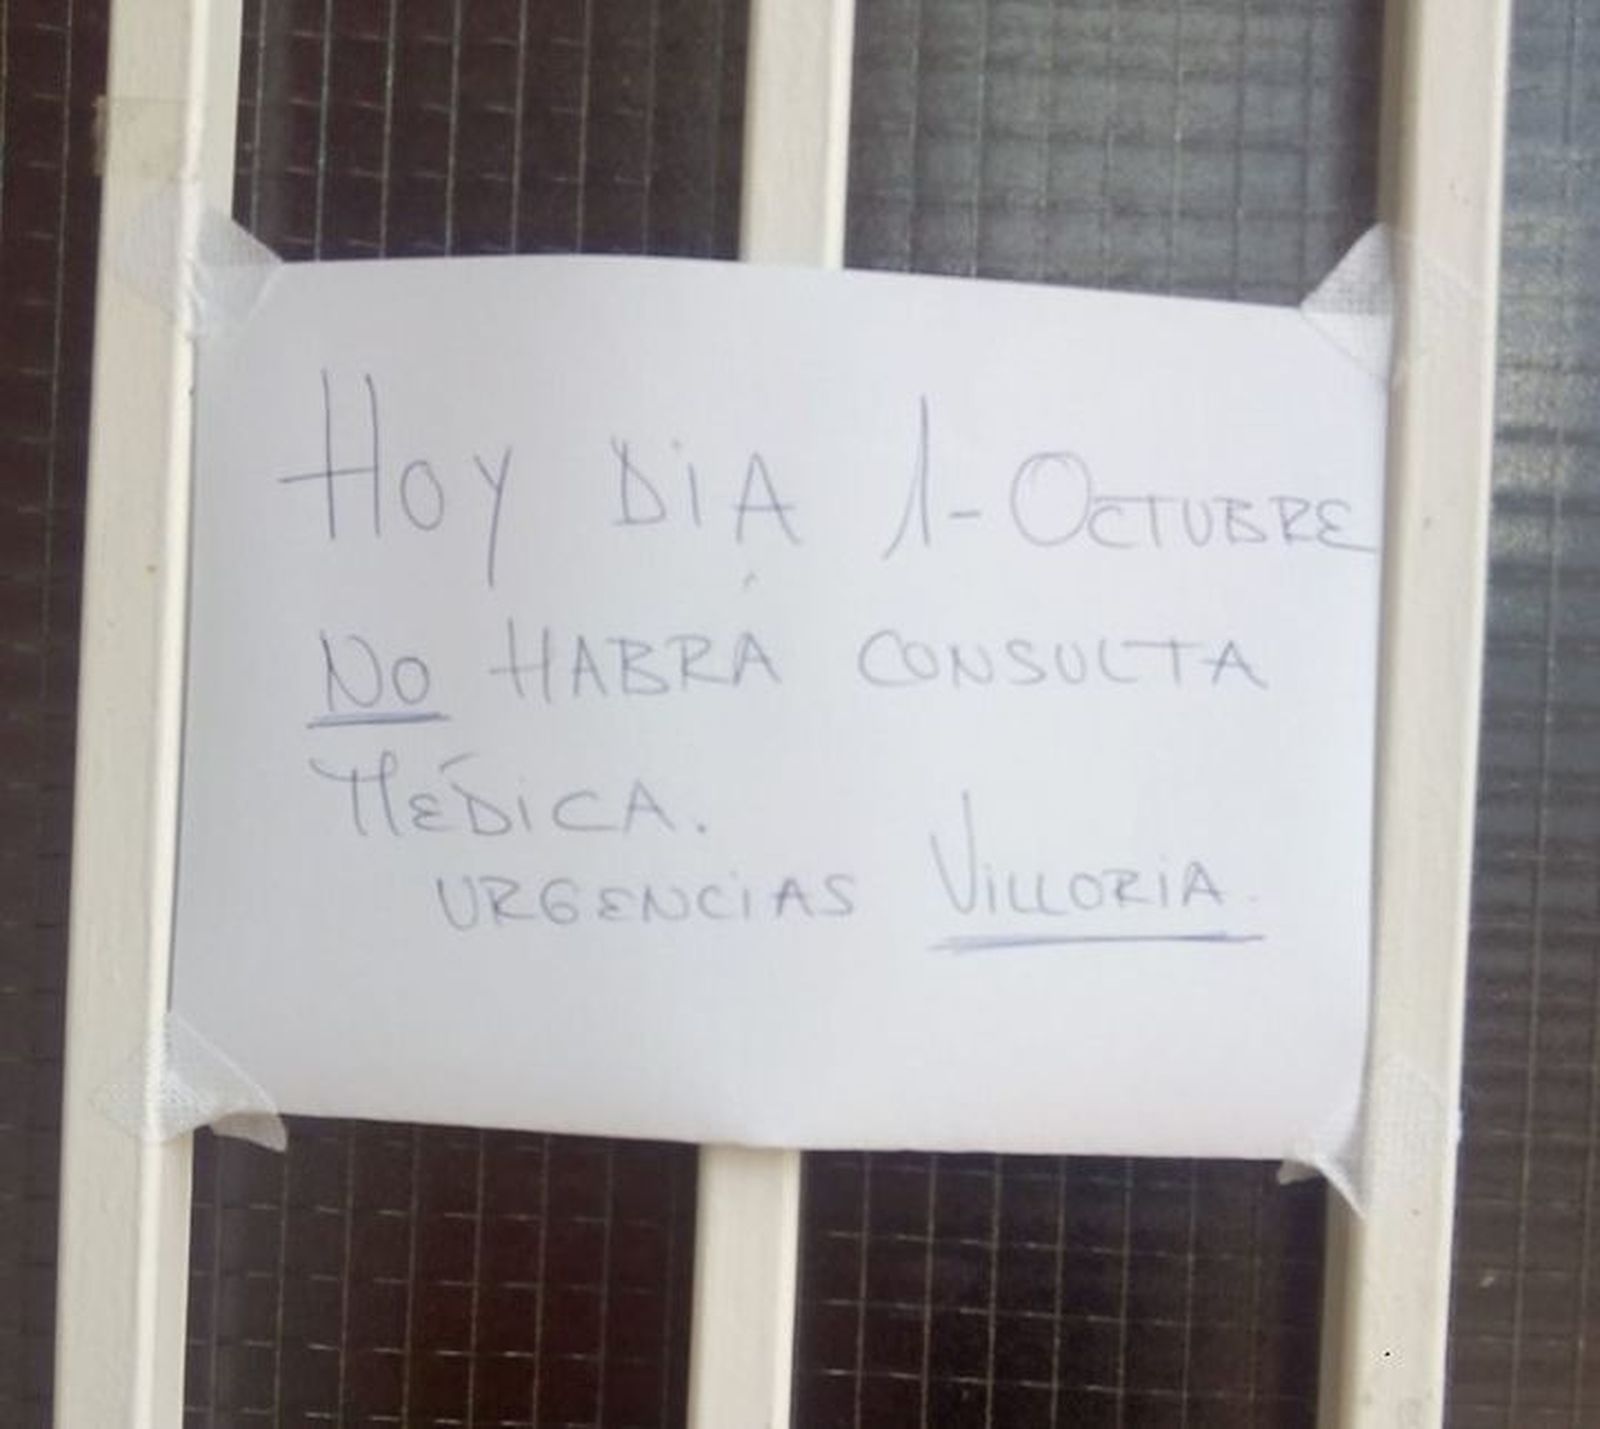 HOY DIA 1-OCTUBRE
NO HABRÁ CONSULTA
MÉDICA.
URGENCIAS VILLORIA.